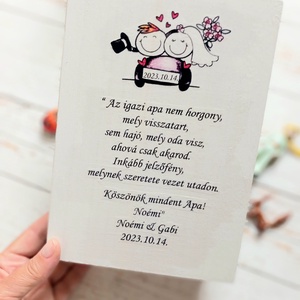 2023.10.14.
" Az igazi apa nem horgony,
mely visszatart,
sem hajó, mely oda visz,
ahová csak akarod.
Inkább jelzőfény,
melynek szeretete vezet utadon.
Köszönök mindent Apa!
Noémi"
Noémi & Gabi
2023.10.14.